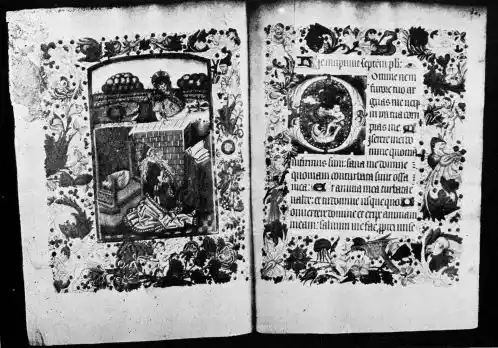 Incipiunt septem ps
Domine ne in
furore tuo ar
guas me neq
in ira tua cor
ripias me M
iserere mei do
mine quonia
infirmus sum: sana me domine
quoniam conturbata sunt ossa
mea: Et anima mea turbata e
valde: et tu domine usque quo C
onvertere domine et eripe animam
meam: salvum me fac mise